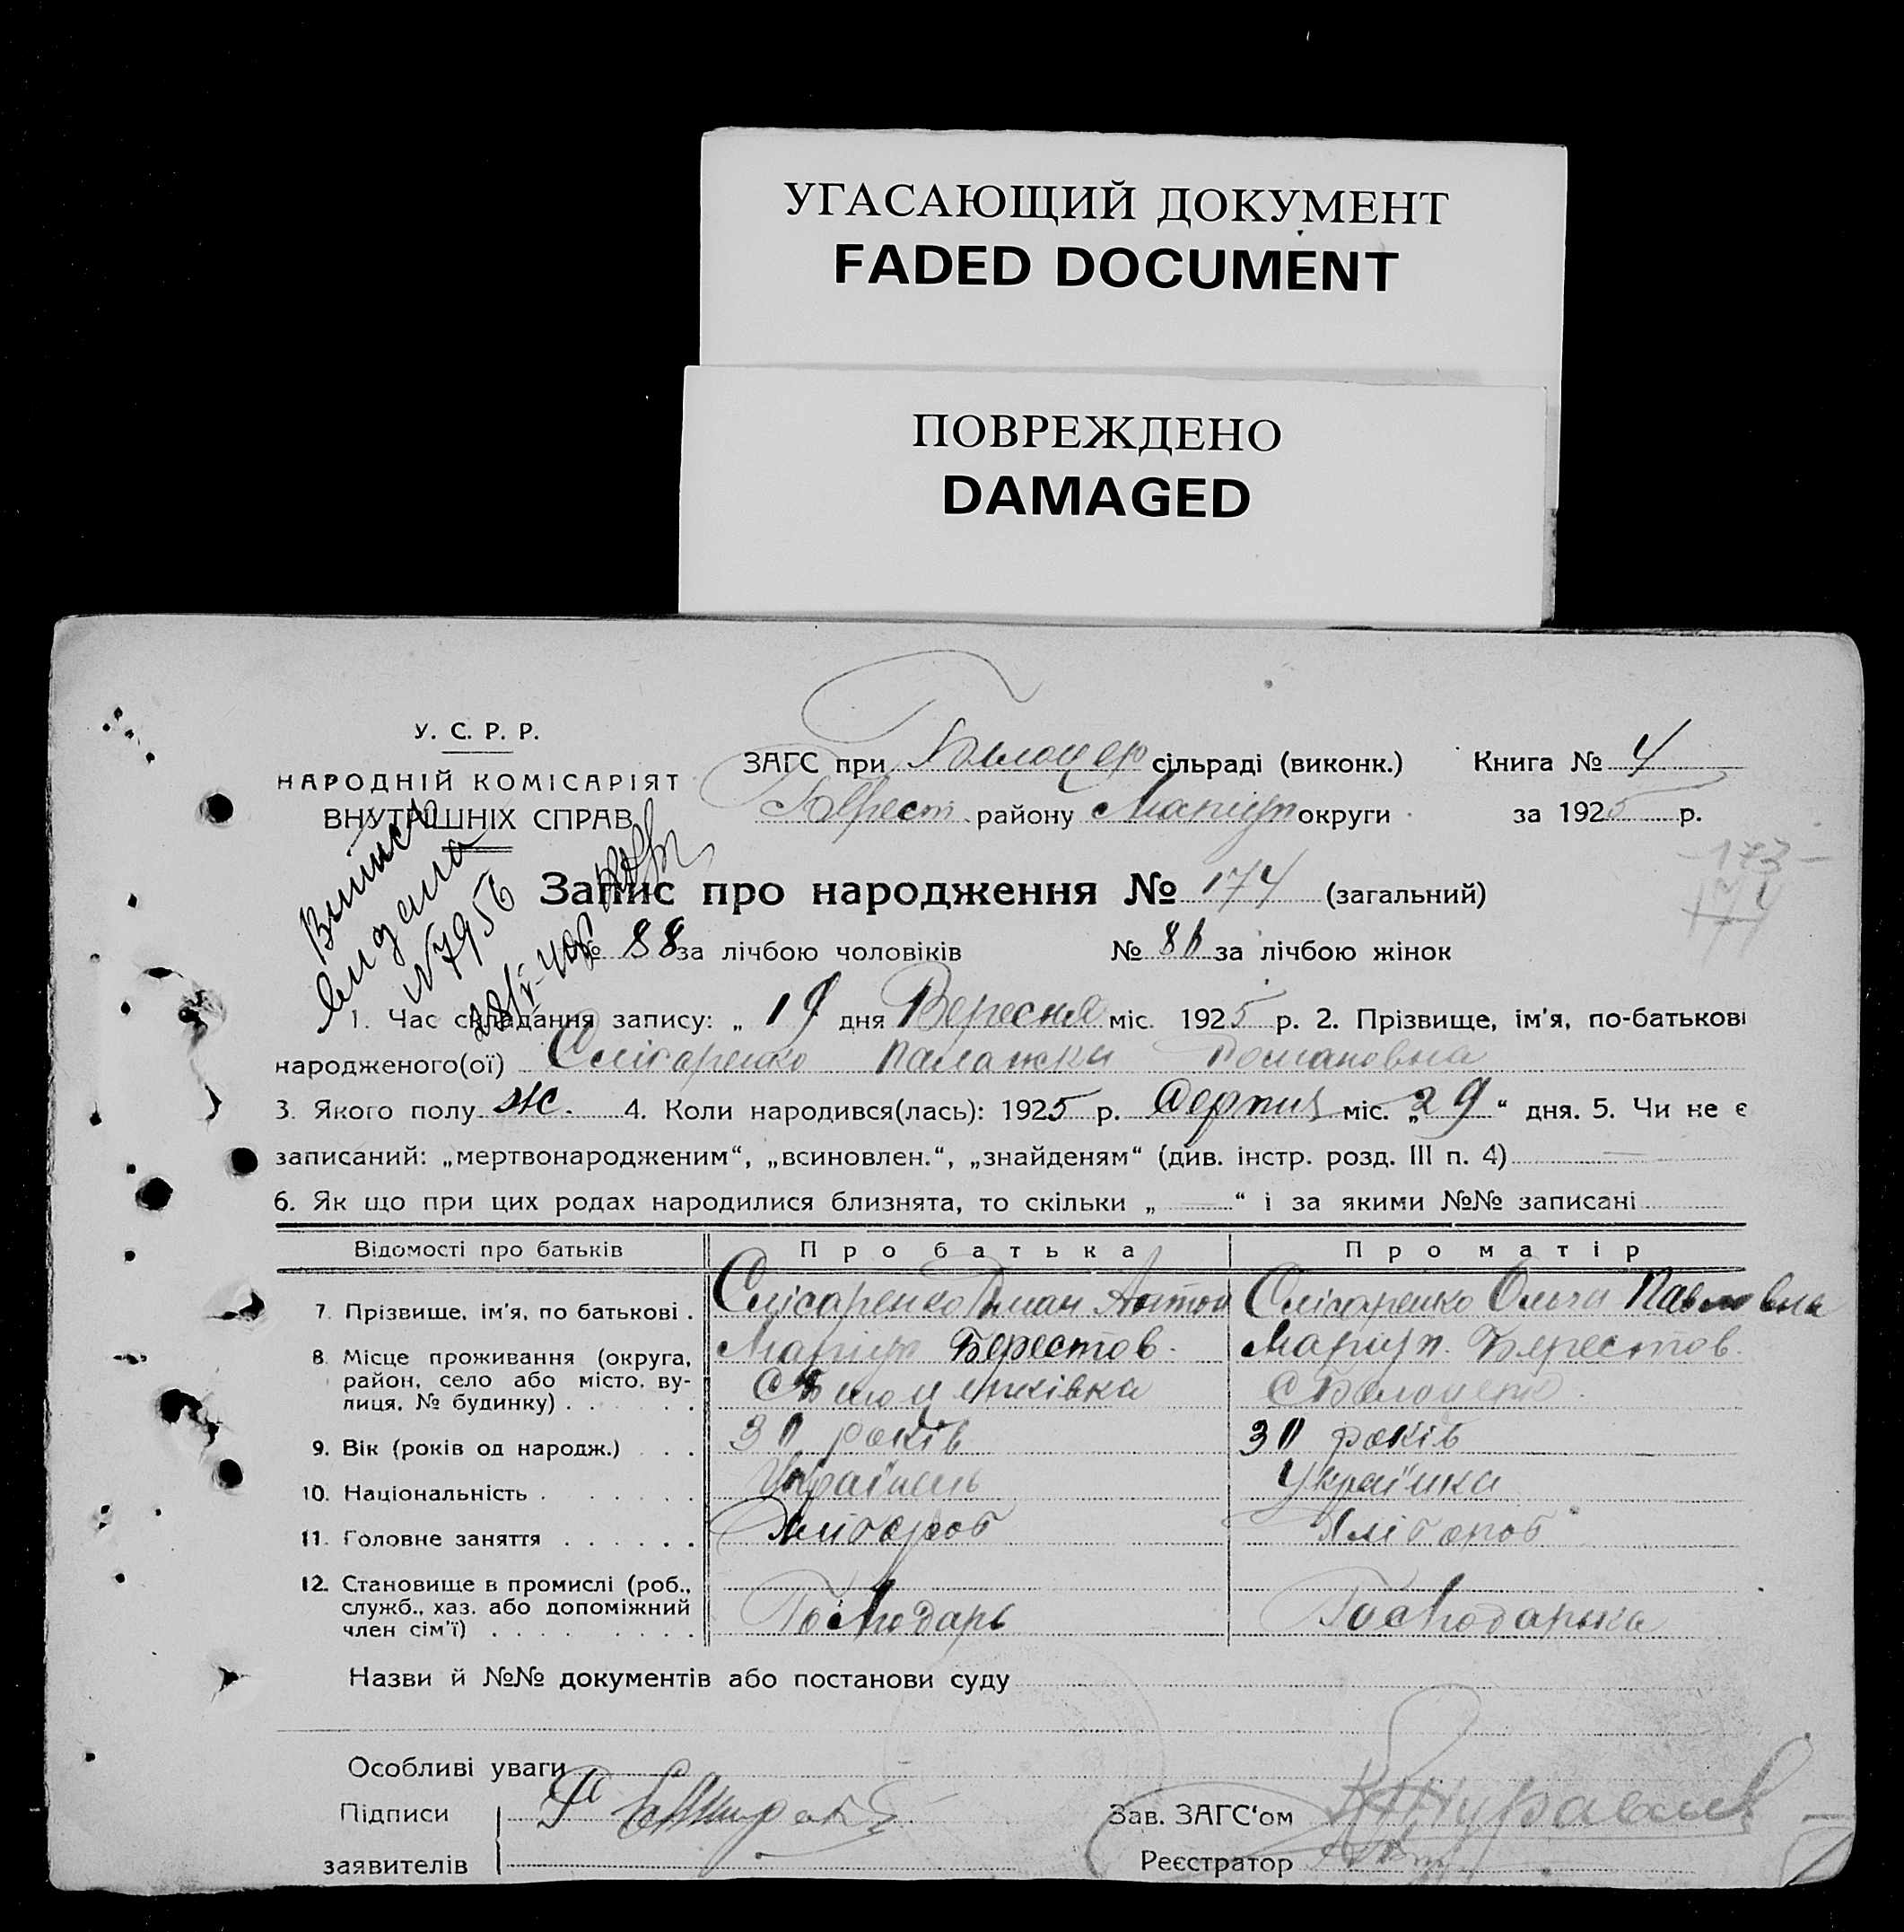 УГАСАЮЩИЙ ДОКУМЕНТ
FADED DOCUMENT
ПОВРЕЖДЕНО
DAMAGED
У. С. Р. Р.
НАРОДНІЙ КОМІСАРІЯТ
ВНУТРІШНІХ СПРАВ
ЗАГС при Білоцер сільраді (виконк.) Книга № 4
Берест. району Маріуп округи за 1925 р.
-173-
174
Виписъ
видана
№7956
Запис про народження № 174 (загальний)
№ 88 за лічбою чоловіків № 86 за лічбою жінок
1. Час складання запису: „ 19 дня Вересня міс. 1925 р. 2. Прізвище, ім'я, по-батькові
народженого(ої) Слісаренко Палажка Романовна
3. Якого полу ж. 4. Коли народився(лась): 1925 р. Серпня міс. „29“ дня. 5. Чи не є
записаний: „мертвонародженим“, „всиновлен.“, „знайденям“ (див. інстр. розд. III п. 4)
6. Як що при цих родах народилися близнята, то скільки „ — “ і за якими №№ записані
Відомості про батьків Про батька Про матір
7. Прізвище, ім'я, по батькові . Слісаренко Роман Антон Слісаренко Ольга Павловна
8. Місце проживання (округа, Маріуп Берестов. Маріуп. Берестов.
район, село або місто, ву-
лиця, № будинку) . . . .
9. Вік (років од народж.) . . 30 років 30 років
10. Національність . . . . . . Українець Українка
11. Головне заняття . . . . . . Хлібороб Хлібороб
12. Становище в промислі (роб.,
служб., хаз. або допоміжний Господарь Господарька
член сім'ї) . . . . . . . .
Назви й №№ документів або постанови суду
Особливі уваги
Підписи Зав. ЗАГС'ом
заявителів Реєстратор